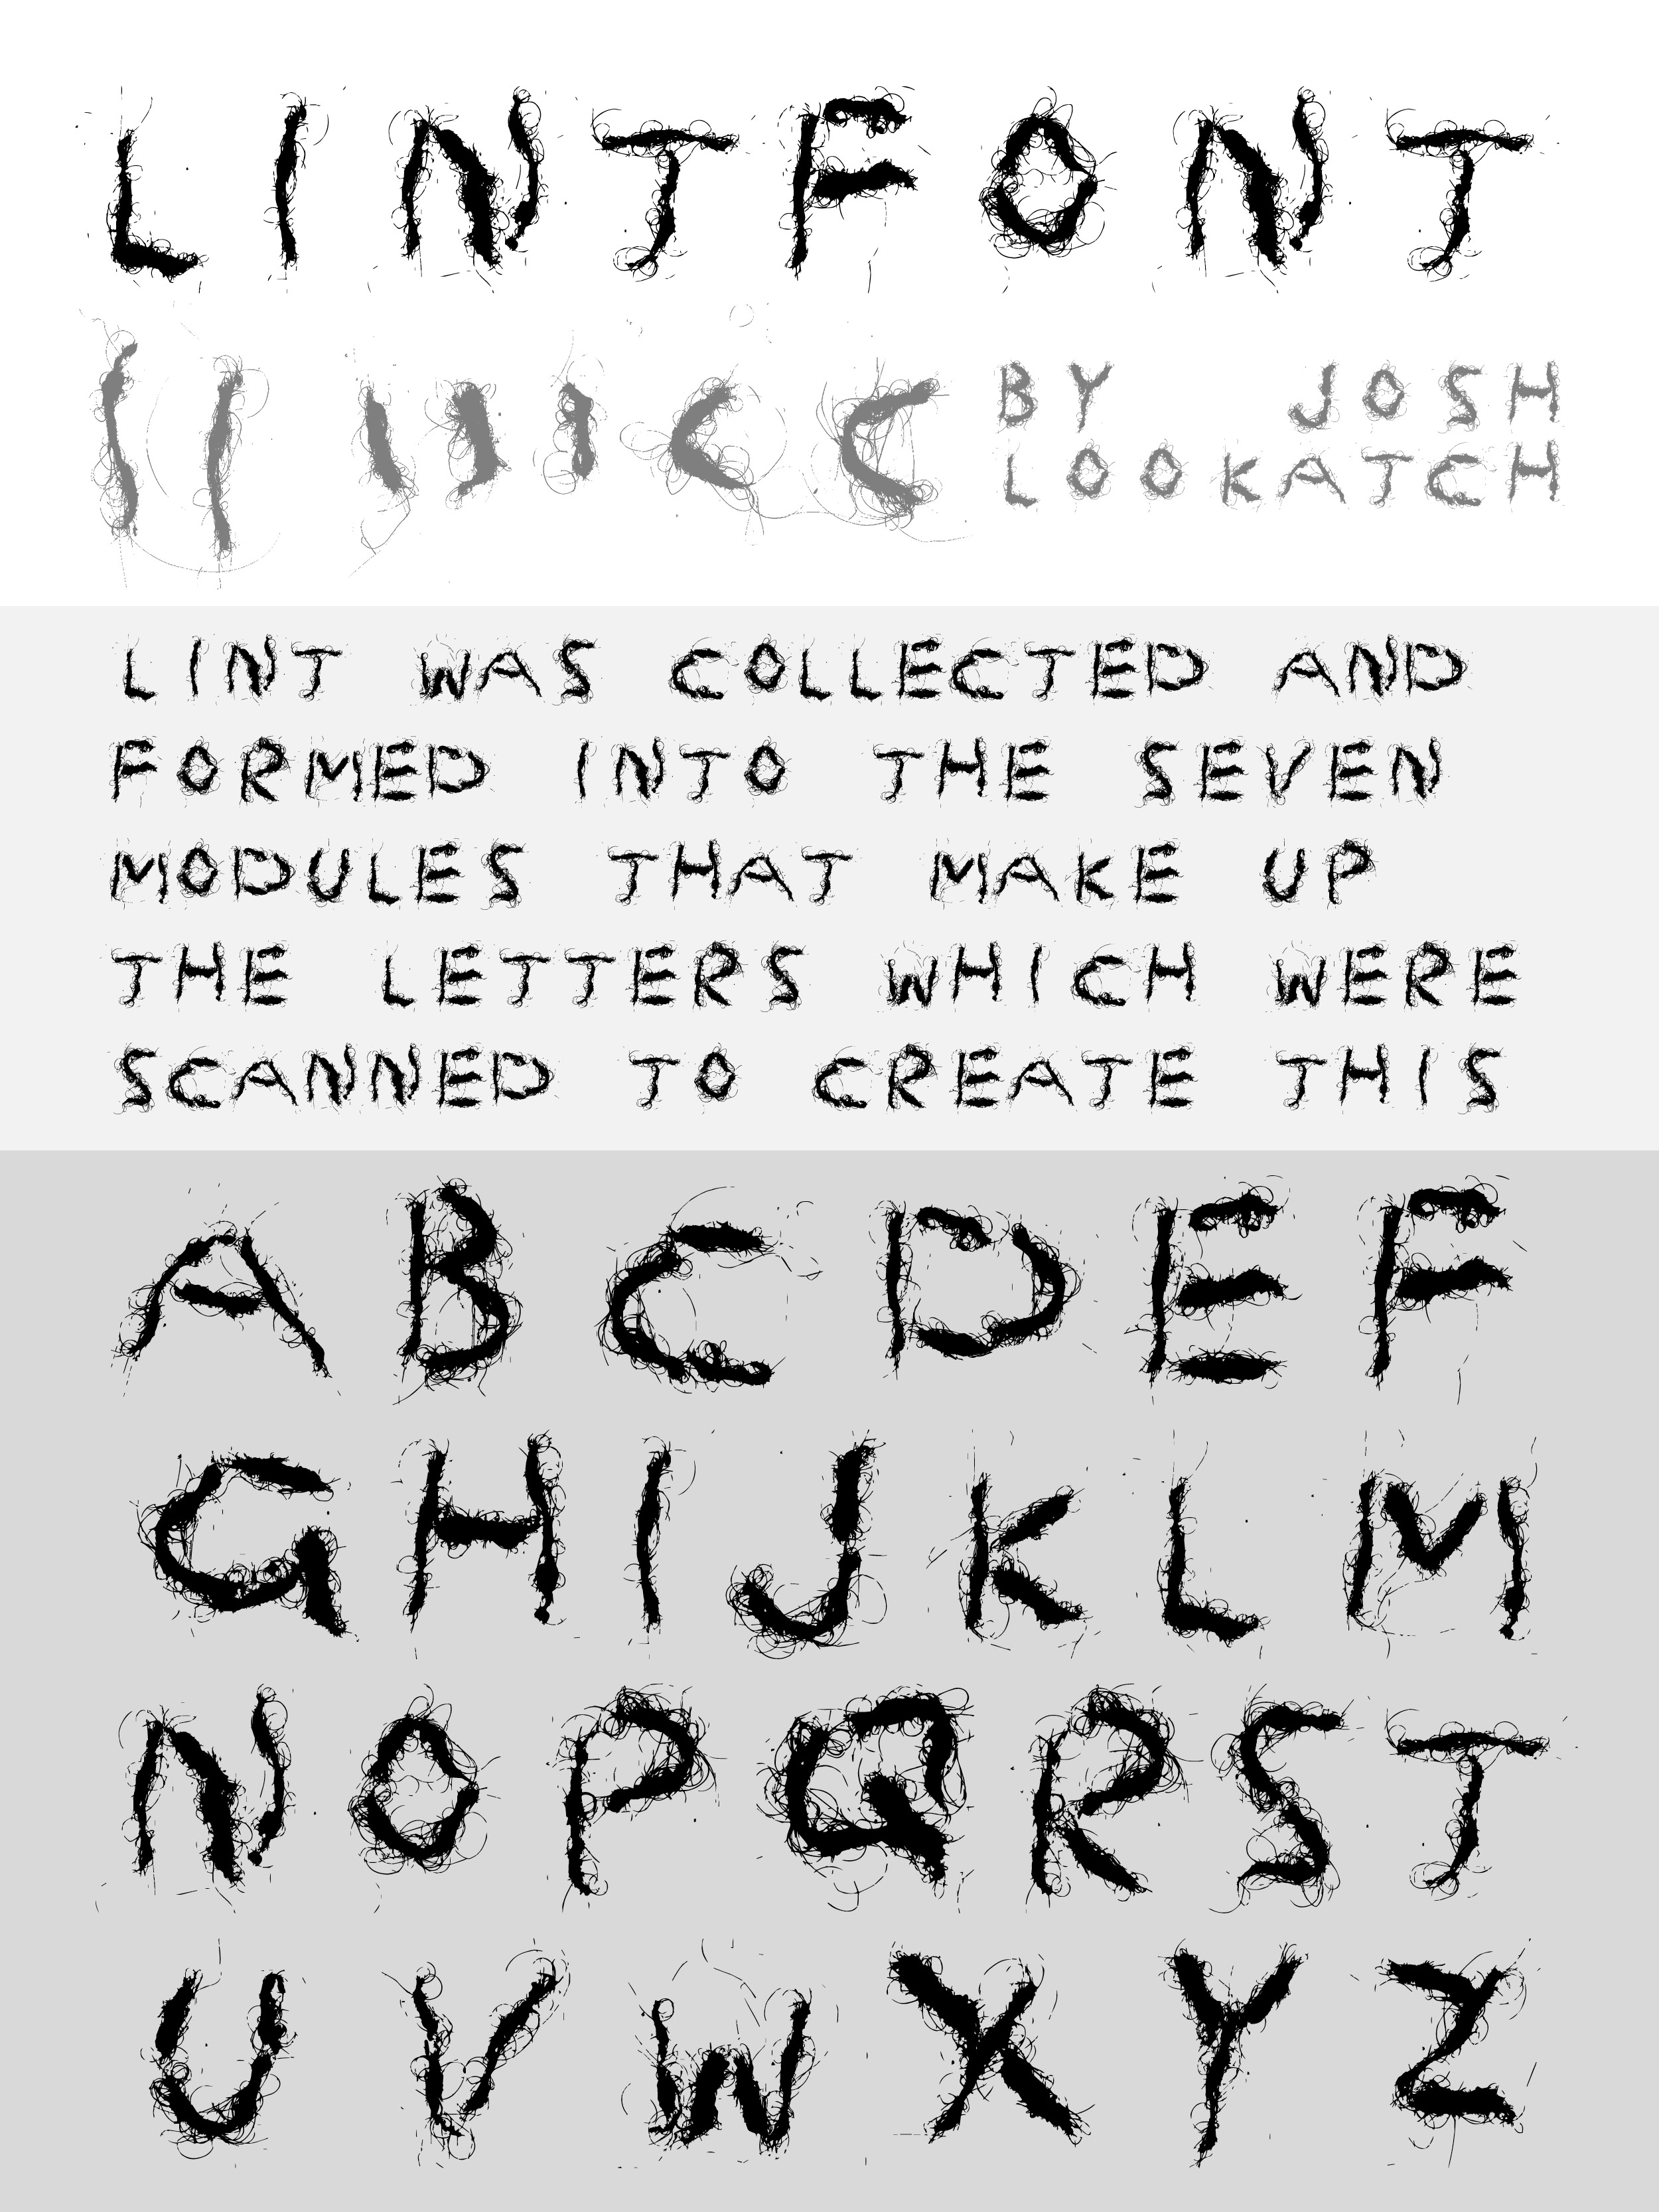 LINTFONT
BY JOSH
LOOKATCH
LINT WAS COLLECTED AND
FORMED INTO THE SEVEN
MODULES THAT MAKE UP
THE LETTERS WHICH WERE
SCANNED TO CREATE THIS
A B C D E F
G H I J K L M
N O P Q R S T
U V W X Y Z